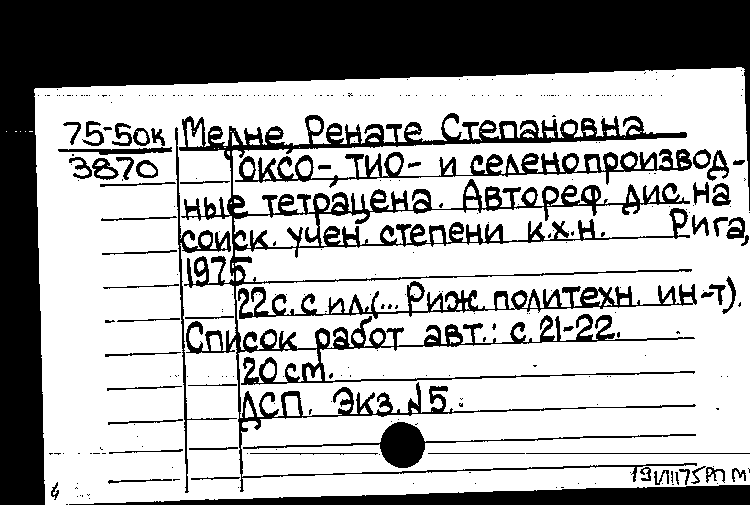 75-5ок Медне, Ренате Степановна.
3870 Оксо-, тио- и селенопроизвод-
ные тетрацена. Автореф. дис. на
соиск. учен. степени к.х.н. Рига,
1975.
22 с. с ил. (... Риж. политехн. ин-т).
Список работ авт.: с. 21-22.
20 cm.
ДСП. Экз. №5.